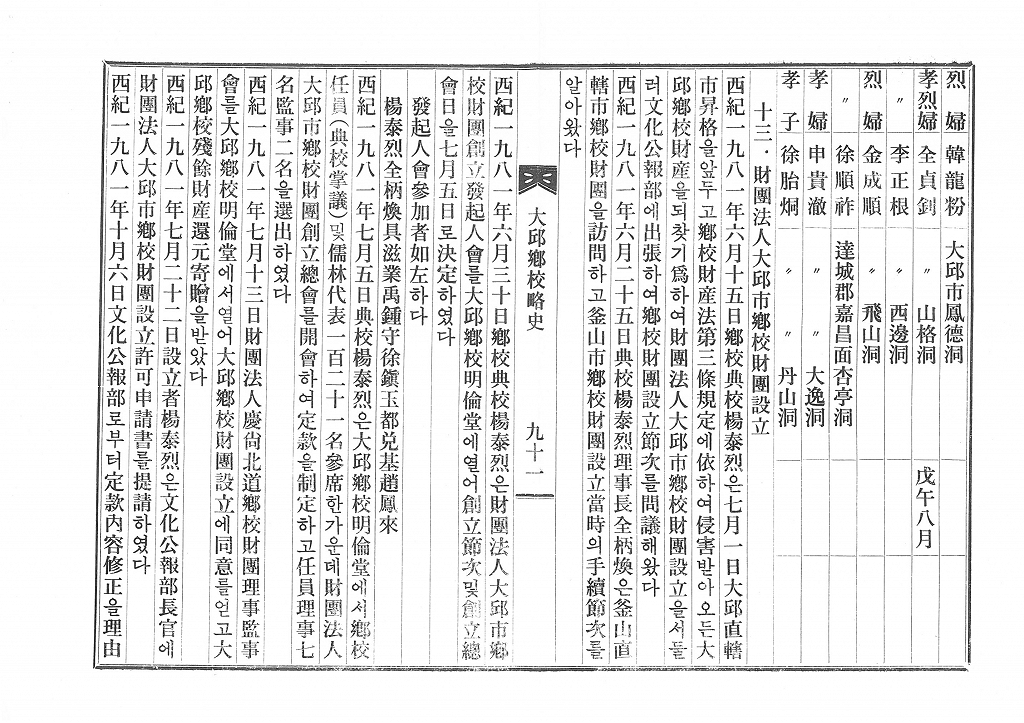 烈婦 韓龍粉 大邱市鳳德洞
孝烈婦 全貞釗 〃 山格洞 戊午八月
〃 李正根 〃 西邊洞
烈婦 金成順 〃 飛山洞
〃 徐順祚 達城郡嘉昌面杏亭洞
孝婦 申貴澈 〃 〃 大逸洞
孝子 徐胎炯 〃 〃 丹山洞
十三·財團法人大邱市鄕校財團設立
西紀一九八一年六月十五日鄕校典校楊泰烈은七月一日大邱直轄
市昇格을앞두고鄕校財産法第三條規定에依하여侵害받아오든大
邱鄕校財産을되찾기爲하여財團法人大邱市鄕校財團設立을서둘
러文化公報部에出張하여鄕校財團設立節次를問議해왔다
西紀一九八一年六月二十五日典校楊泰烈理事長全柄煥은釜山直
轄市鄕校財團을訪問하고釜山市鄕校財團設立當時의手續節次를
알아왔다
大邱鄕校略史 九十一
西紀一九八一年六月三十日鄕校典校楊泰烈은財團法人大邱市鄕
校財團創立發起人會를大邱鄕校明倫堂에열어創立節次및創立總
會日을七月五日로決定하였다
發起人會參加者如左하다
楊泰烈全柄煥具滋業禹鍾守徐鎭玉都兌基趙鳳來
西紀一九八一年七月五日典校楊泰烈은大邱鄕校明倫堂에서鄕校
任員(典校掌議)및儒林代表一百二十一名參席한가운데財團法人
大邱市鄕校財團創立總會를開會하여定款을制定하고任員理事七
名監事二名을選出하였다
西紀一九八一年七月十三日財團法人慶尙北道鄕校財團理事監事
會를大邱鄕校明倫堂에서열어大邱鄕校財團設立에同意를얻고大
邱鄕校殘餘財産還元寄贈을받았다
西紀一九八一年七月二十二日設立者楊泰烈은文化公報部長官에
財團法人大邱市鄕校財團設立許可申請書를提請하였다
西紀一九八一年十月六日文化公報部로부터定款內容修正을理由